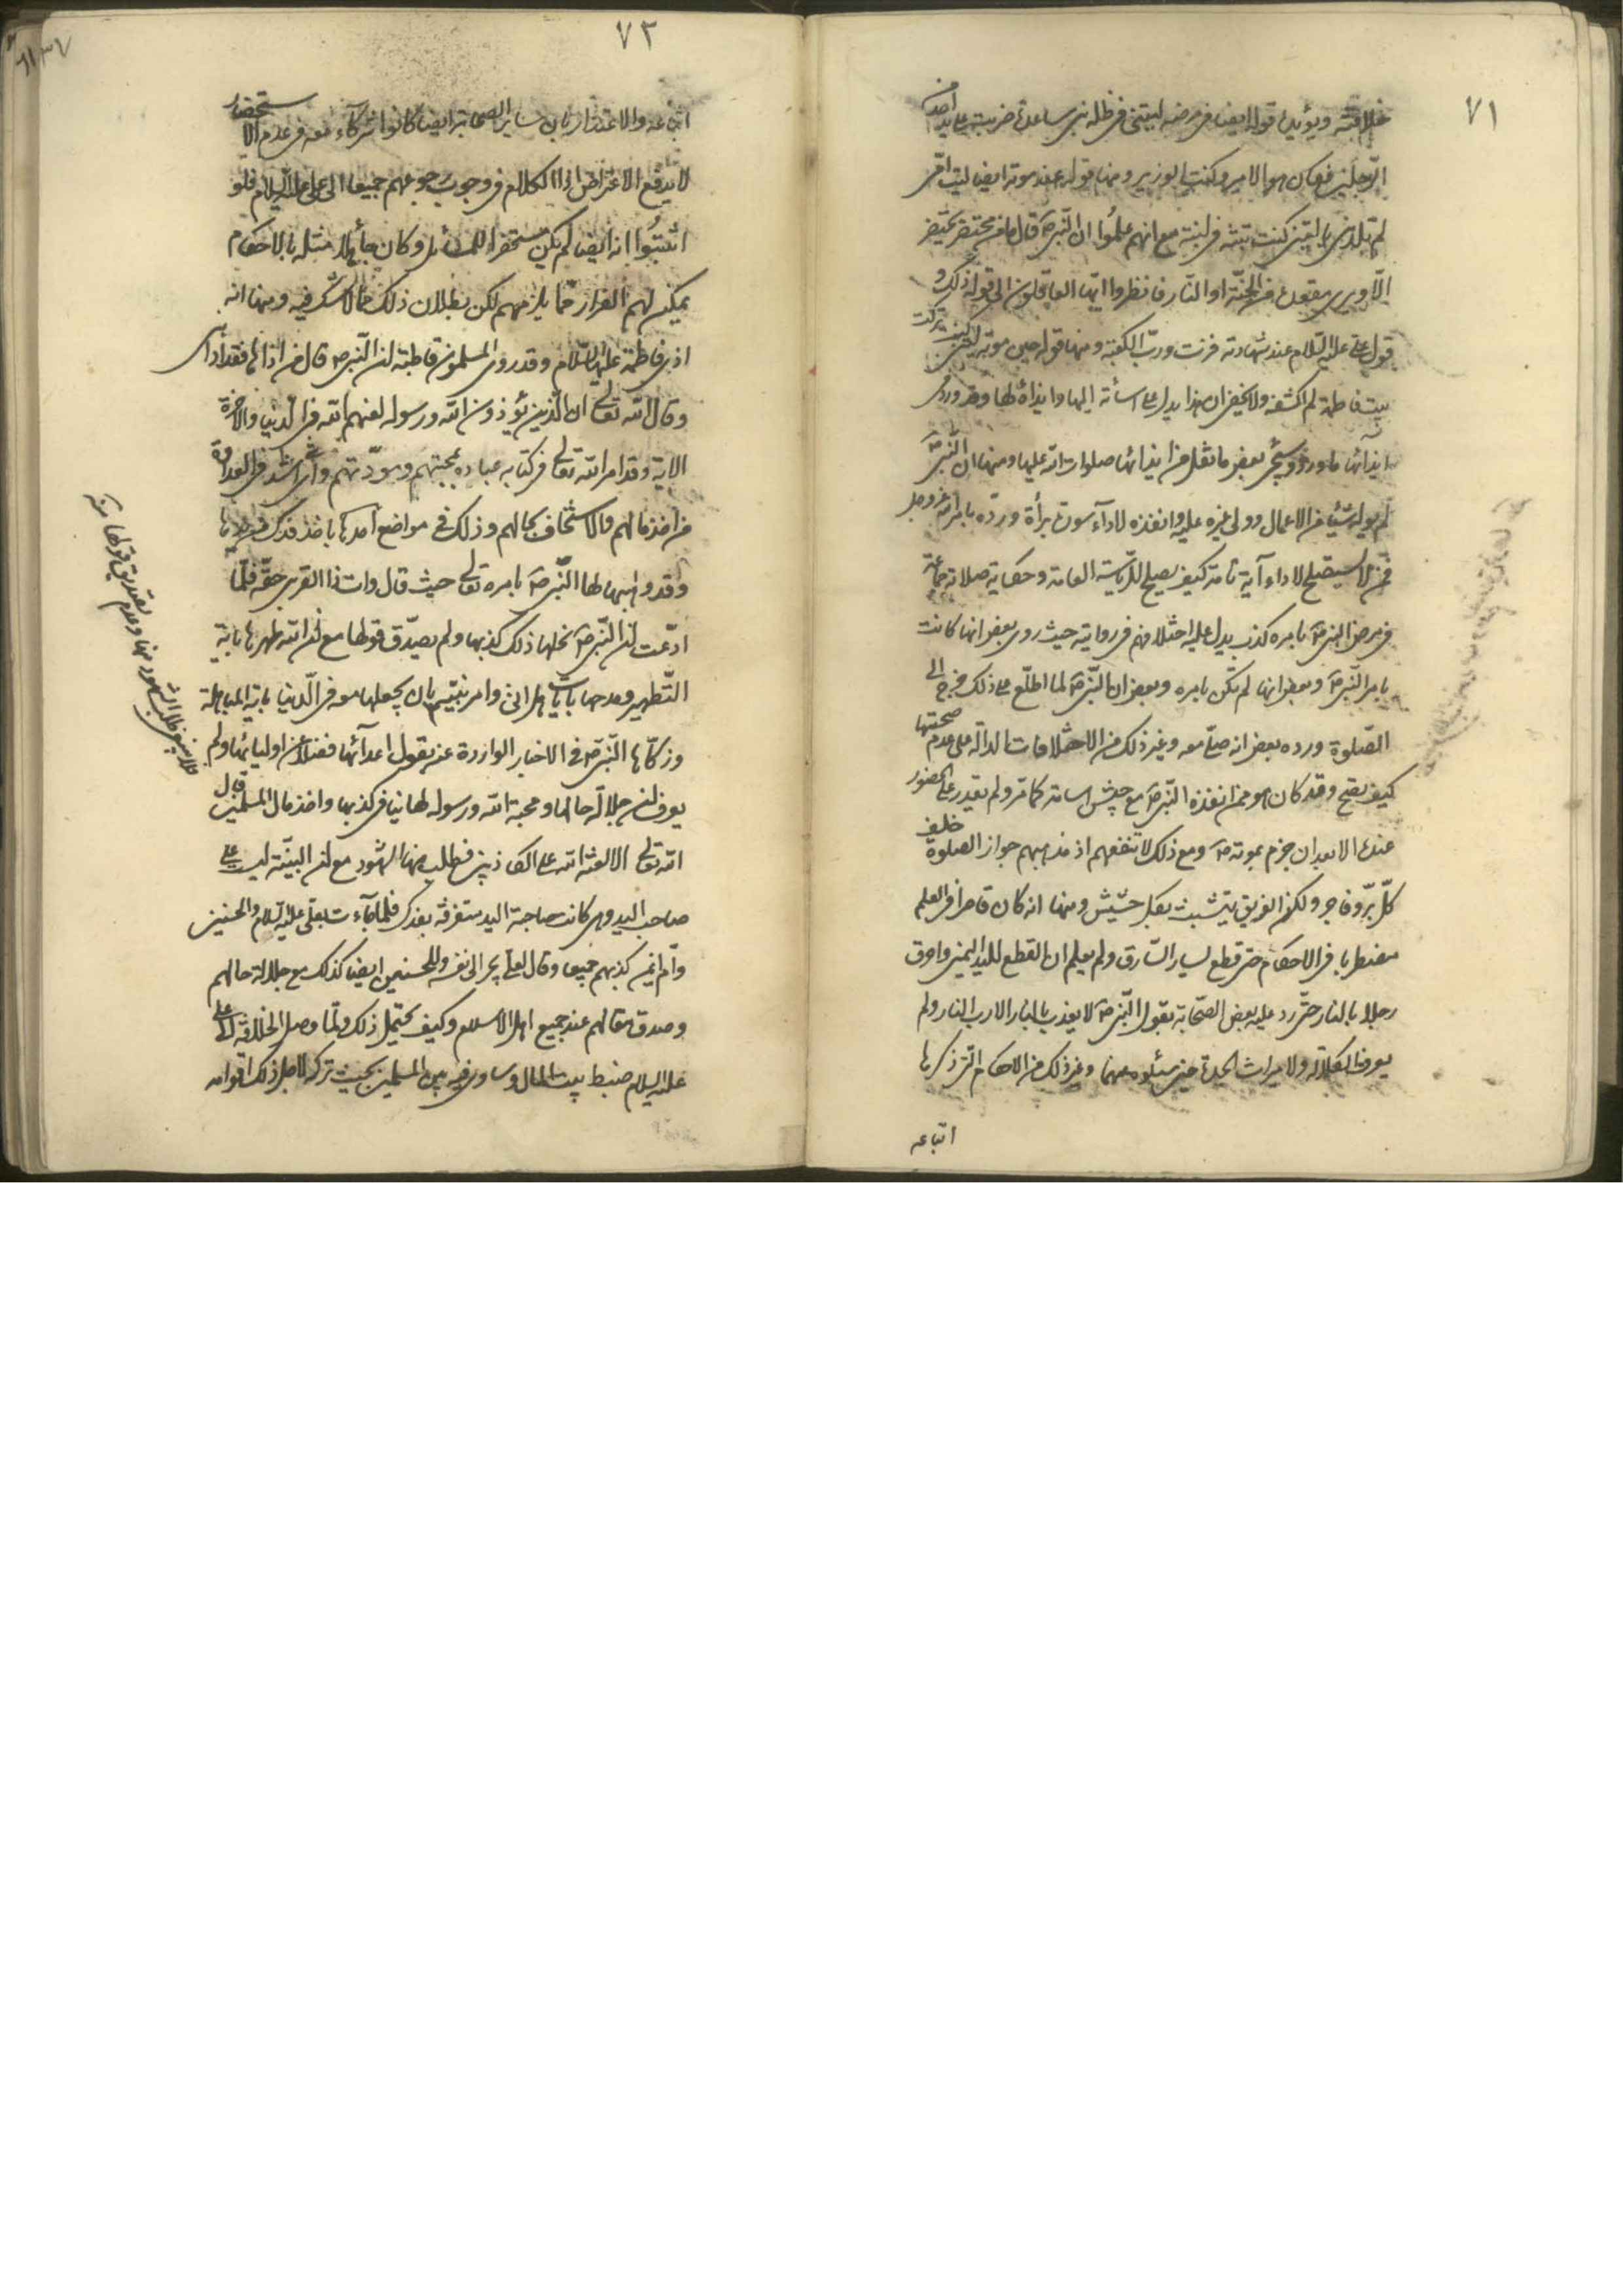 ٧١
خلافته ويؤيده قوله ايضا في مرضه ليتني في ظلة بني ساعدة ضربت على يد احد
الرّجلين فكان هو الامير وكنت الوزير ومنها قوله عند موته ايضا ليت امّي
لم تلدني يا ليتني كنت تبنة في لبنة مع انهم علموا ان النّبي ص قال ما من محتضر يحتضر
الّا ويرى مقعده من الجنّة او النّار فانظروا ايّها العاقلون الى قوله ذلك و
قول علي عليه السّلام عند شهادته فزت وربّ الكعبة ومنها قوله حين موته ليتني تركت
بيت فاطمة لم اكشفه ولا يخفى ان هذا يدل على اساءته اليها وايذائه لها وقد ورد في
ايذائها ما ورد وسيجئ بعض ما نقل من ايذائها صلوات الله عليها ومنها ان النّبي ص
لم يوله شيئا من الاعمال وولى غيره عليه وانفذه لاداء سورة برأة وردّه بامره عز وجل
فمن لا يصلح لاداء آية تامة كيف يصلح للرّياسة العامة وحكاية صلاته جماعة
في مرض النبي ص بامره كذب يدل عليه اختلافهم في روايته حيث روى بعض انها كانت
بامر النّبي ص وبعض انها لم تكن بامره وبعض ان النّبي ص لما اطلع على ذلك خرج الى
الصّلوة ورده بعض انه صلّى معه وغير ذلك من الاختلافات الدالة على عدم صحتها
كيف يصح وقد كان هو ممن انفذه النّبي ص مع جيش اسامة كما مر ولم يقدر على الحضور
عنده الا بعد ان جزم بموته ص ومع ذلك لا تنفعهم اذ مذهبهم جواز الصلوة خلف
كلّ برّ وفاجر ولكن الغريق يتشبث بكل حشيش ومنها انه كان قاصرا في العلم
مضطربا في الاحكام حتى قطع يسار السّارق ولم يعلم ان القطع لليد اليمنى واحرق
رجلا بالنار حتّى رد عليه بعض الصّحابة بقول النّبي ص لا يعذب بالنار الا رب النار ولم
يعرف الكلالة ولا ميراث الجدة حين سئلوه عنهما وغير ذلك من الاحكام الّتي ذكرها
اتباعه
٧٣
اتباعه والاعتذار بان ساير الصحابة ايضا كانوا شركاء معه في عدم الاستحضار
لا يدفع الاعتراض اذا الكلام في وجوب رجوعهم جميعا الى علي عليه السلام فلو
اثبتوا انه ايضا لم يكن مستحضرا للمسائل وكان جاهلا مثله بالاحكام
يمكن لهم الفرار عما يلزمهم لكن بطلان ذلك مما لا شك فيه ومنها انه
اذى فاطمة عليها السّلام وقد روى المسلمون قاطبة ان النّبي ص قال من اذاها فقد اذاني
وقال الله تعالى ان الّذين يؤذون الله ورسوله لعنهم الله في الدّنيا والاخرة
الاية وقد امر الله تعالى في كتابه عباده بمحبتهم ومودّتهم واي شئ اشد في العداوة
من اخذ مالهم والاستخفاف بحالهم وذلك في مواضع احدها باخذ فدك من يدها
وقد وهبها لها النّبي ص بامره تعالى حيث قال وات ذا القربى حقّه فلمّا
ادّعت ان النّبي ص نحلها ذلك كذبها ولم يصدّق قولها مع ان الله طهرها باية
التّطهير ومدحها بايات هل اتى وامر نبيّه بان يجعلها معه في الدّنيا باية المباهلة
وزكّاها النّبي ص في الاخبار الواردة عنه بقول اعدائها فضلا عن اوليائها ولم
يعرف ان جلالة حالها ومحبة الله ورسوله لها ينافي كذبها واخذ مال المسلمين قال
الله تعالى الا لعنة الله على الكاذبين فطلب منها الشهود مع ان البيّنة ليست على
صاحب اليد وهي كانت صاحبة اليد متصرفة بفدك فلما جاءت بعلي عليه السلام والحسنين
وام ايمن كذبهم جميعا وقال لعلي يجر الى نفسه وللحسنين ايضا كذلك مع جلالة حالهم
وصدق مقالهم عند جميع اهل الاسلام وكيف يحتمل ذلك ولمّا وصل الخلافة الى علي
عليه السلام ضبط بيت المال وساوى فيه بين المسلمين بحيث تركه لاجل ذلك اقوامه
فلا ينبغي طلب الشهود منها وعدم تصديق قولها منه